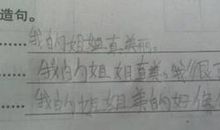 造句。
……我的姐姐真美丽。
……我的姐姐真美。我很
……我的姐姐美的好像